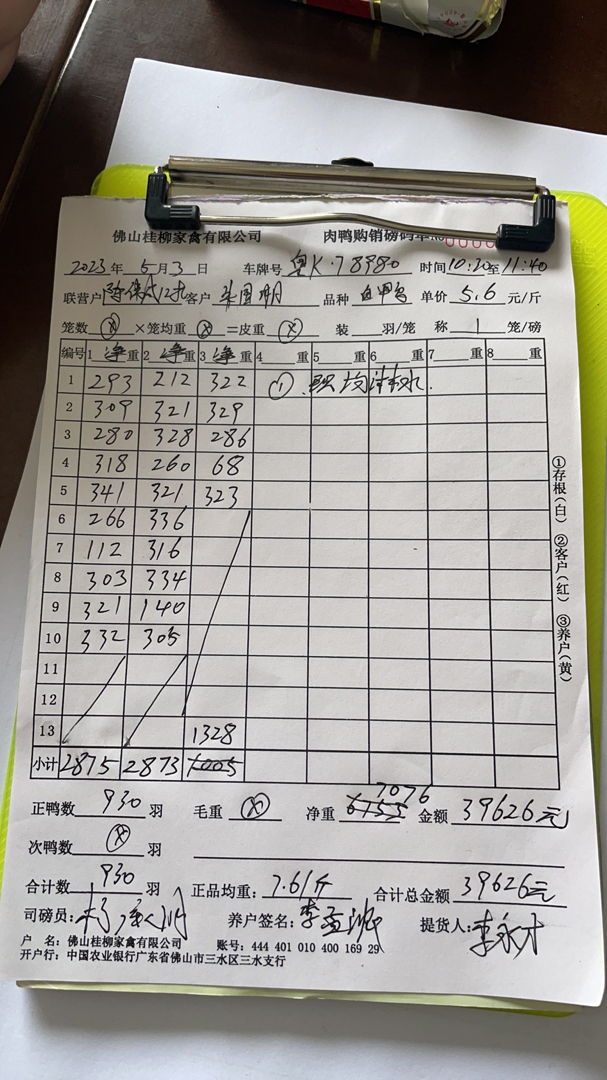 佛山桂柳家禽有限公司 肉鸭购销磅码单
2023年 5月3日 车牌号 粤K·78980 时间10:20至11:40
联营户 客户 品种 单价 5.6 元/斤
笼数 ⊗ ×笼均重 ⊗ =皮重 ⊗ 装 羽/笼 称 1 笼/磅
编号 1 净重 2 净重 3 净重 4 重 5 重 6 重 7 重 8 重
1 293 212 322 ①
2 309 321 329
3 280 328 286
4 318 260 68
5 341 321 323
6 266 336
7 112 316
8 303 334
9 321 140
10 332 305
11
12
13 1328
小计 2875 2873 1005
①存根(白) ②客户(红) ③养户(黄)
7076
正鸭数 930 羽 毛重 ⊗ 净重 6755 金额 39626元
次鸭数 ⊗ 羽
合计数 930 羽 正品均重: 7.61斤 合计总金额 39626元
司磅员: 养户签名: 提货人: 李永才
户 名: 佛山桂柳家禽有限公司 账号: 444 401 010 400 169 29
开户行: 中国农业银行广东省佛山市三水区三水支行